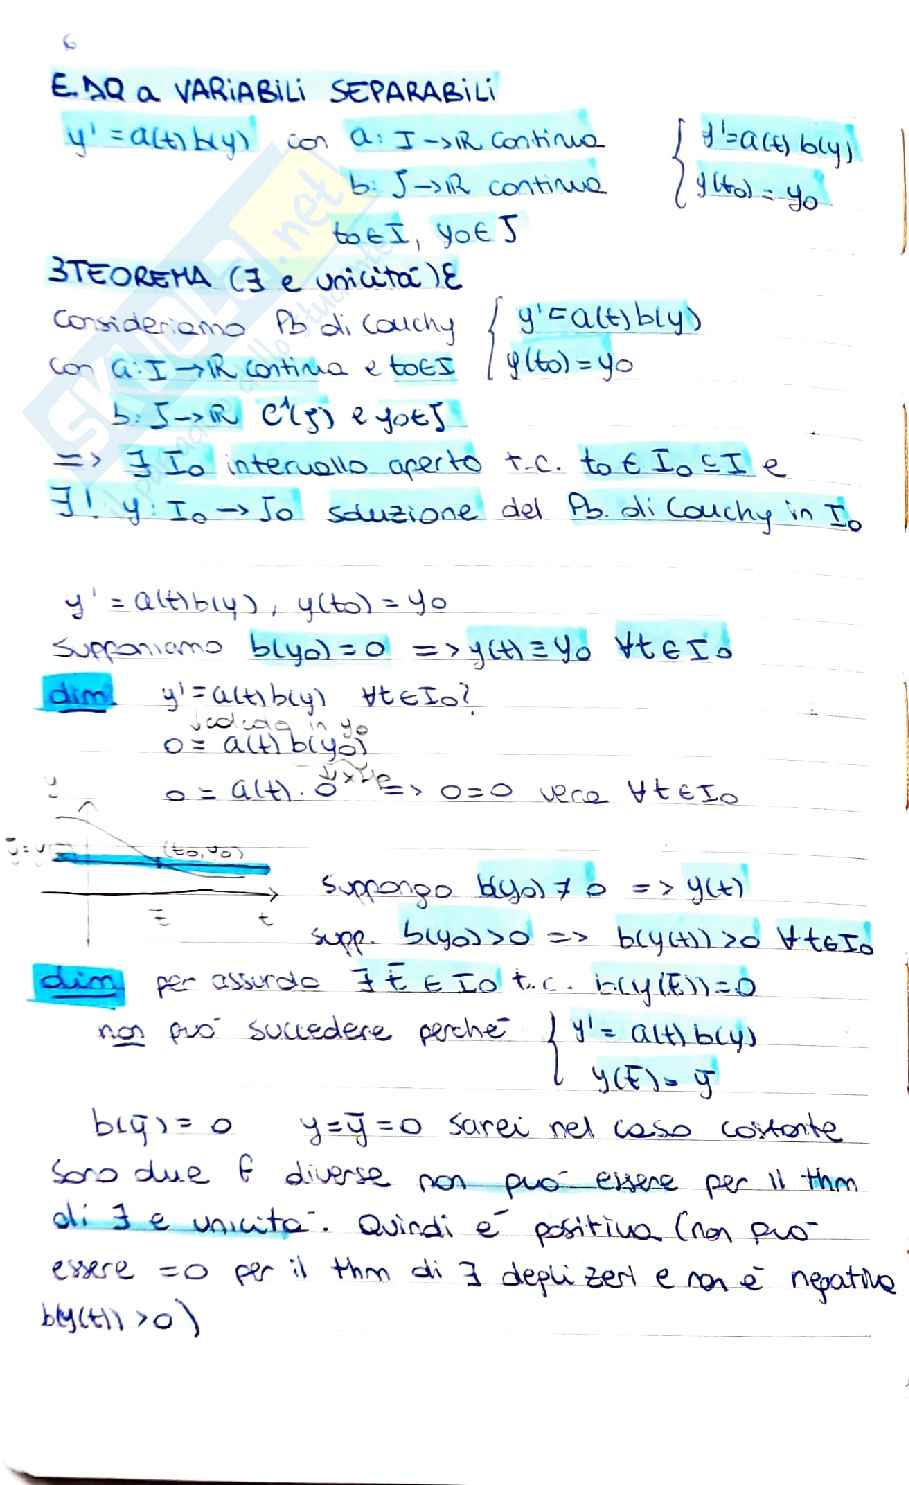 6
E.DQ a VARIABILI SEPARABILI
y' = a(t) b(y) con a: I → ℝ continua { y' = a(t) b(y)
b: J → ℝ continua { y(t0) = y0
t0 ∈ I, y0 ∈ J
3TEOREMA (∃ e unicità)
Consideriamo Pb di Cauchy { y' = a(t) b(y)
con a: I → ℝ continua e t0 ∈ I { y(t0) = y0
b: J → ℝ C¹(J) e y0 ∈ J
=> ∃ I0 intervallo aperto t.c. t0 ∈ I0 ⊆ I e
∃! y: I0 → J0 soluzione del Pb. di Cauchy in I0
y' = a(t) b(y), y(t0) = y0
Supponiamo b(y0) = 0 => y(t) ≡ y0 ∀t ∈ I0
dim y' = a(t) b(y) ∀t ∈ I0?
↓ calcola in y0
0 = a(t) b(y0)
0 = a(t) · 0 => 0=0 vera ∀t ∈ I0
y
(t0, y0)
t̄ t
Suppongo b(y0) ≠ 0 => y(t)
supp. b(y0) > 0 => b(y(t)) > 0 ∀t ∈ I0
dim per assurdo ∃ t̄ ∈ I0 t.c. b(y(t̄)) = 0
non può succedere perché { y' = a(t) b(y)
{ y(t̄) = ȳ
b(ȳ) = 0 y = ȳ = 0 sarei nel caso costante
Sono due f diverse non può essere per il thm
di ∃ e unicità. Quindi è positiva (non può
essere =0 per il thm di ∃ degli zeri e non è negativa
b(y(t)) > 0)
SKUOLA.net